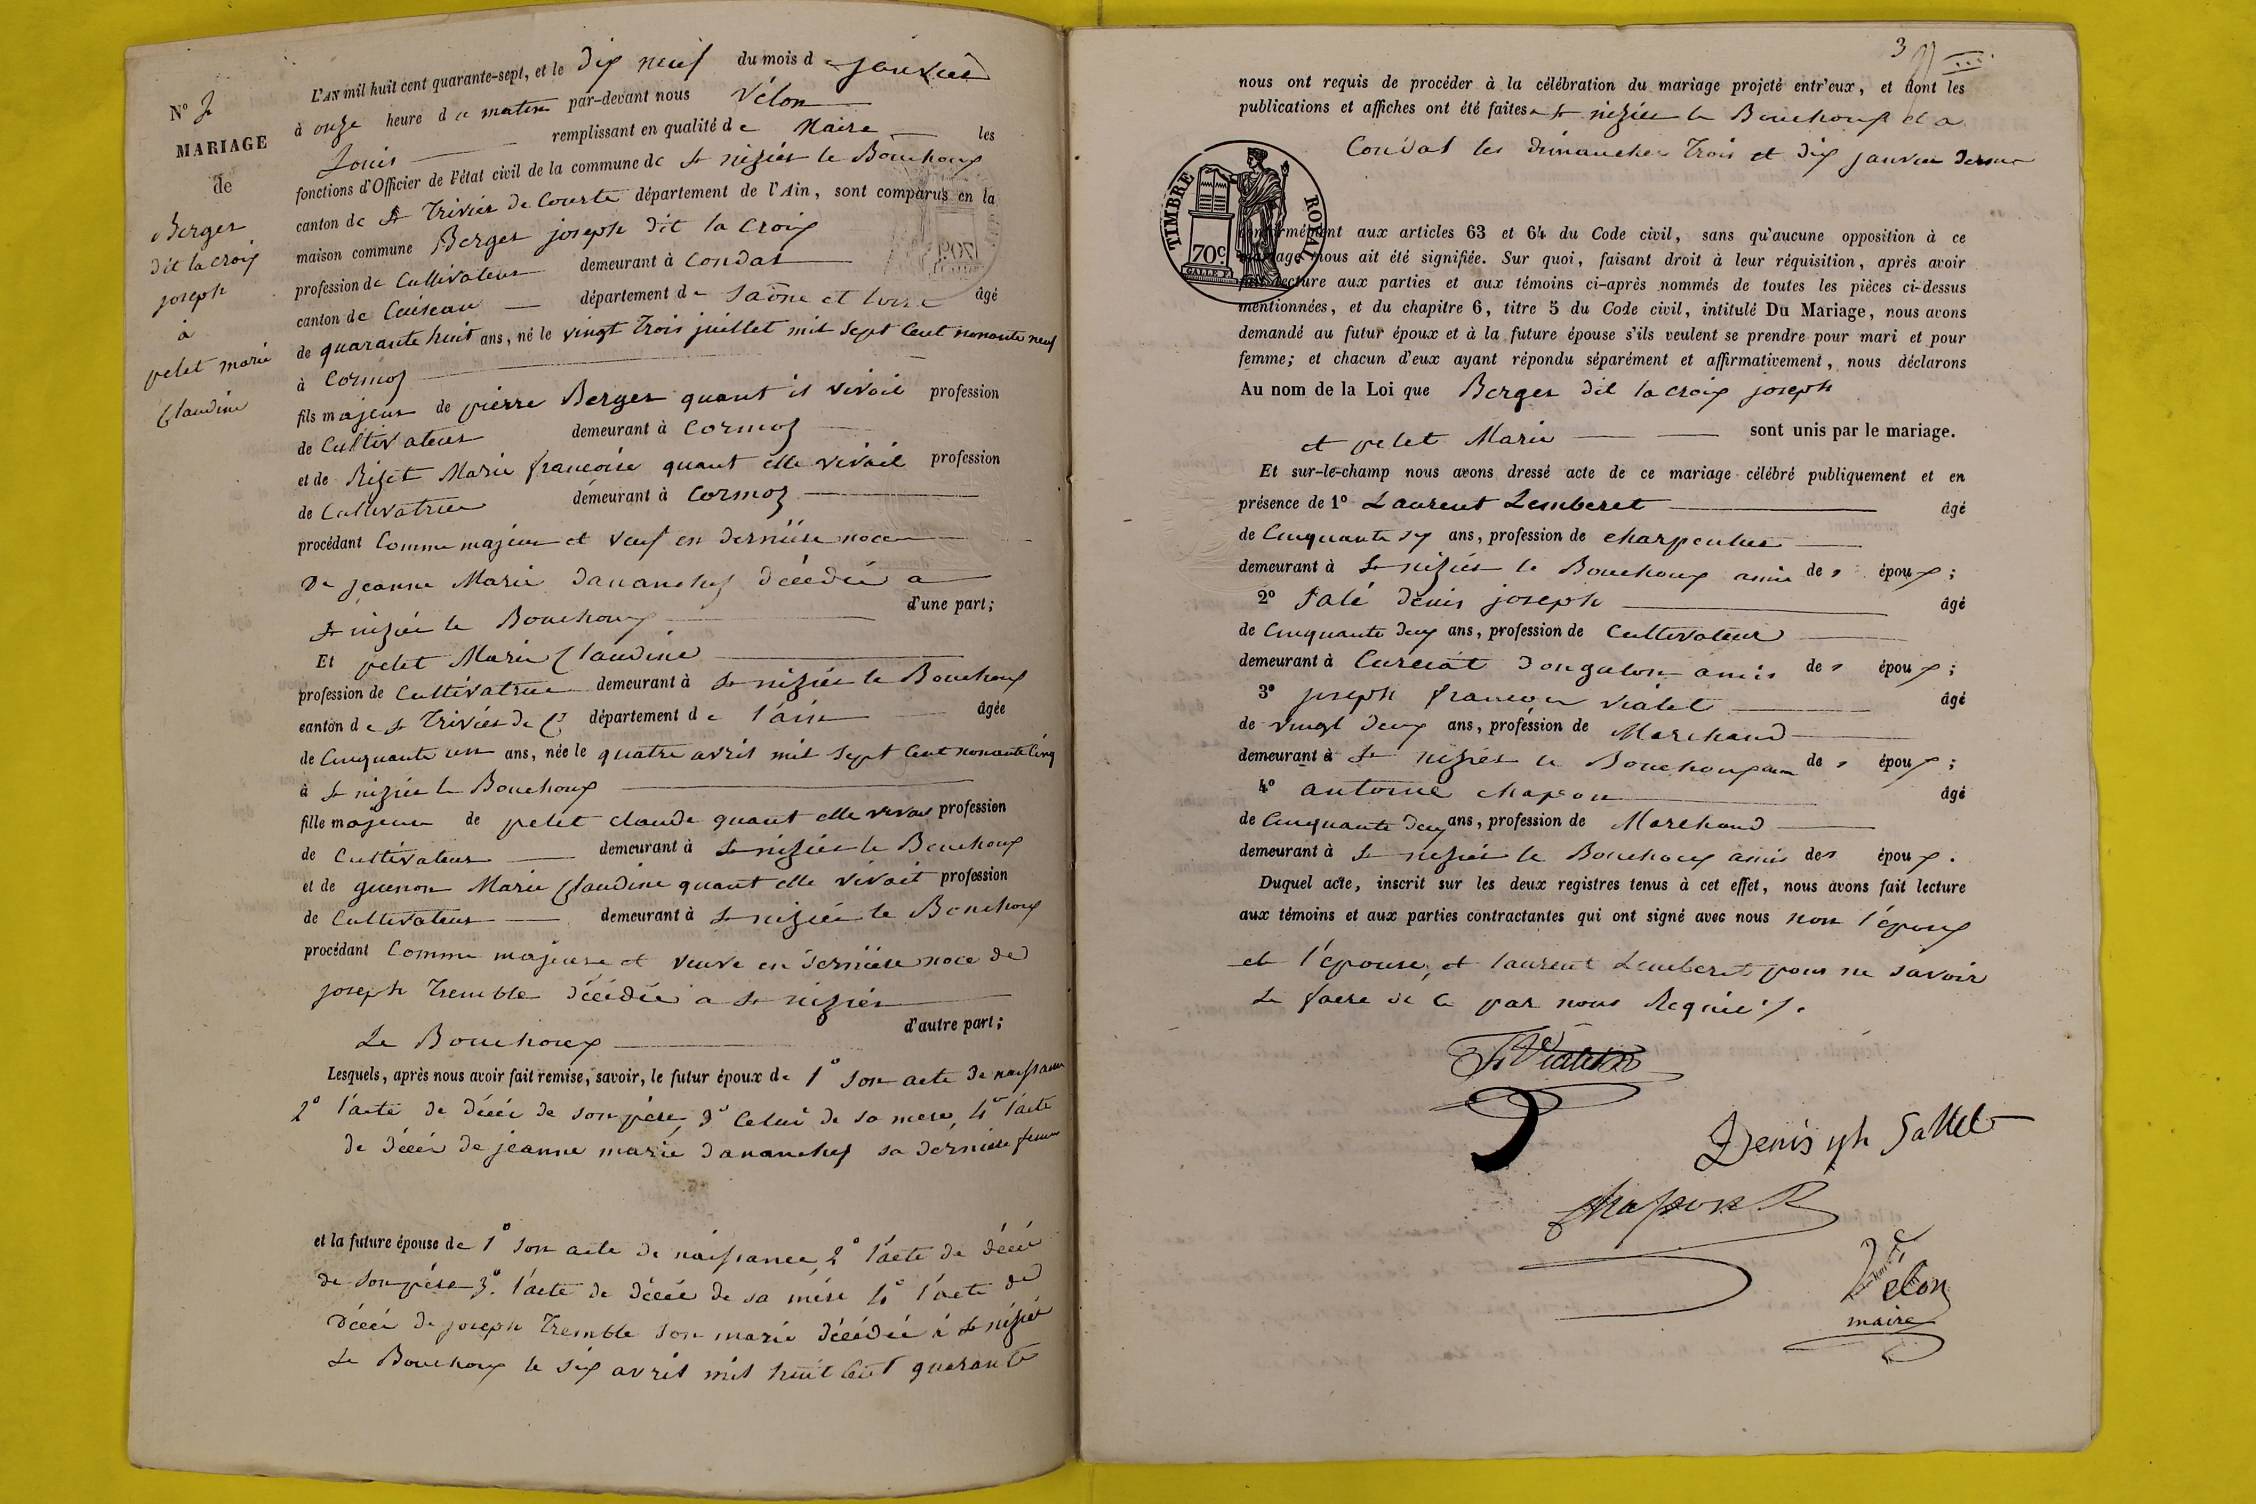 N° 2
MARIAGE
de
Berger
dit la croix
joseph
à
pelet marie
Claudine
L'AN mil huit cent quarante-sept, et le dix neuf du mois de janvier
à onze heure du matin par-devant nous Vélon
Louis remplissant en qualité de Maire les
fonctions d'Officier de l'état civil de la commune de St nizier le Bouchoux
canton de St Trivier de Courte département de l'Ain, sont comparus en la
maison commune Berger joseph dit la croix
profession de Cultivateur demeurant à Condat
canton de Cuiseau département de Saône et Loire âgé
de quarante huit ans, né le vingt trois juillet mil sept Cent nonante neuf
à Cormoz
fils majeur de pierre Berger quant il vivoit profession
de Cultivateur demeurant à Cormoz
et de Rizet Marie francoise quant elle vivoit profession
de Cultivatrice demeurant à Cormoz
procédant Comme majeur et Veuf en dernière noce
de jeanne Marie dananches décédée a
St nizier le Bouchoux d'une part;
Et pelet Marie Claudine
profession de Cultivatrice demeurant à St nizier le Bouchoux
canton de St Trivier de Cs département de l'ain âgée
de Cinquante un ans, née le quatre avril mil sept Cent nonante Cinq
à St nizier le Bouchoux
fille majeure de pelet claude quant elle vivoit profession
de Cultivateur demeurant à St nizier le Bouchoux
et de guenon Marie Claudine quant elle vivoit profession
de Cultivateur demeurant à St nizier le Bouchoux
procédant Comme majeure et veuve en dernière noce de
joseph Tremble décédée a St nizier
Le Bouchoux d'autre part;
Lesquels, après nous avoir fait remise, savoir, le futur époux de 1° son acte de naissance
2° l'acte de décé de son père, 3° Celui de sa mere, 4° l'acte
de décé de jeanne marie dananches sa derniere femme
et la future épouse de 1° son acte de naissance, 2° l'acte de décé
de son père 3° l'acte de décé de sa mére 4° l'acte de
décé de joseph Tremble son marie décédée à St nizier
Le Bouchoux le six avril mil huit Cent quarante
3
nous ont requis de procéder à la célébration du mariage projeté entr'eux, et dont les
publications et affiches ont été faites a St nizier le Bouchoux et a
Condat les dimanches Trois et dix janvier dernier
TIMBRE ROYAL
70c.
conformément aux articles 63 et 64 du Code civil, sans qu'aucune opposition à ce
mariage nous ait été signifiée. Sur quoi, faisant droit à leur réquisition, après avoir
fait lecture aux parties et aux témoins ci-après nommés de toutes les pièces ci-dessus
mentionnées, et du chapitre 6, titre 5 du Code civil, intitulé Du Mariage, nous avons
demandé au futur époux et à la future épouse s'ils veulent se prendre pour mari et pour
femme; et chacun d'eux ayant répondu séparément et affirmativement, nous déclarons
Au nom de la Loi que Berger dit la croix joseph
et pelet Marie sont unis par le mariage.
Et sur-le-champ nous avons dressé acte de ce mariage célébré publiquement et en
présence de 1° Laurent Lemberet âgé
de Cinquante six ans, profession de charpentier
demeurant à St nizier le Bouchoux amis des époux;
2° Salé denis joseph âgé
de Cinquante deux ans, profession de Cultivateur
demeurant à Curciat dongalon amis des époux;
3° joseph francois vialet âgé
de vingt deux ans, profession de Marchand
demeurant à St nizier le Bouchoux des époux;
4° antoine chapon âgé
de Cinquante deux ans, profession de Marchand
demeurant à St nizier le Bouchoux amis des époux.
Duquel acte, inscrit sur les deux registres tenus à cet effet, nous avons fait lecture
aux témoins et aux parties contractantes qui ont signé avec nous non l'époux
et l'épouse, et laurent Lemberet pour ne savoir
le faire de Ce par nous Requis.
Denis jph Sallet
chapon
Vélon
maire